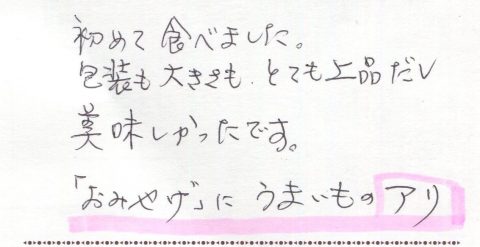 初めて食べました。
包装も大きさも、とても上品だし
美味しかったです。
「おみやげ」にうまいものアリ